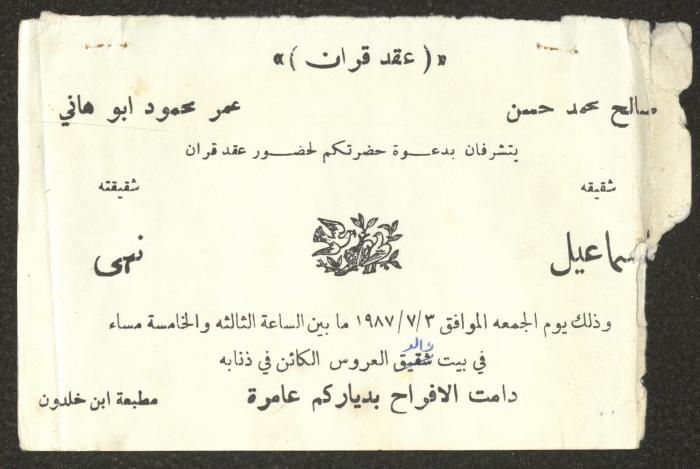 «( عقد قران )»
صالح محمد حسن عمر محمود ابو هاني
يتشرفان بدعوة حضرتكم لحضور عقد قران
شقيقه شقيقته
سماعيل نهى
وذلك يوم الجمعه الموافق ١٩٨٧/٧/٣ ما بين الساعة الثالثه والخامسة مساء
والد
في بيت شقيق العروس الكائن في ذنابه
دامت الافراح بدياركم عامرة مطبعة ابن خلدون